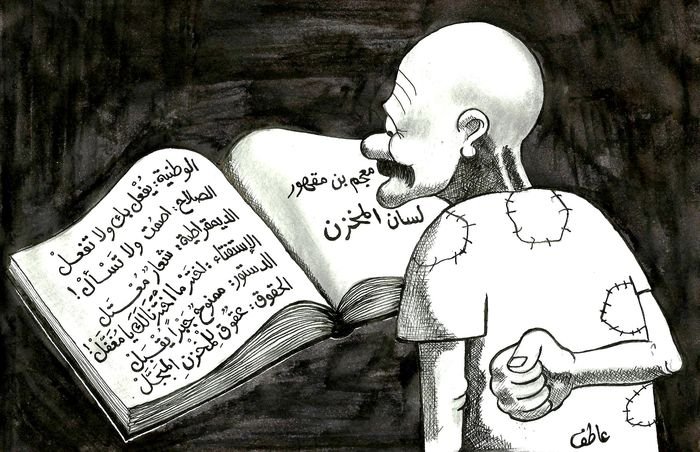 معجم بن مقهور
لسان المخزن
الوطنية: يُفْعل بك ولا تفعلْ
الصالح: اصمت ولا تسألْ!
الديمقراطية: شعارٌ معطّل
الإستفتاء: اختَرْ ما اخترْنا لك يا مغفّلْ!
الدستور: ممنوحٌ جبراً يُقبل
الحقوق: حقوقٌ للمخزنِ المبجَّلْ
عاطف